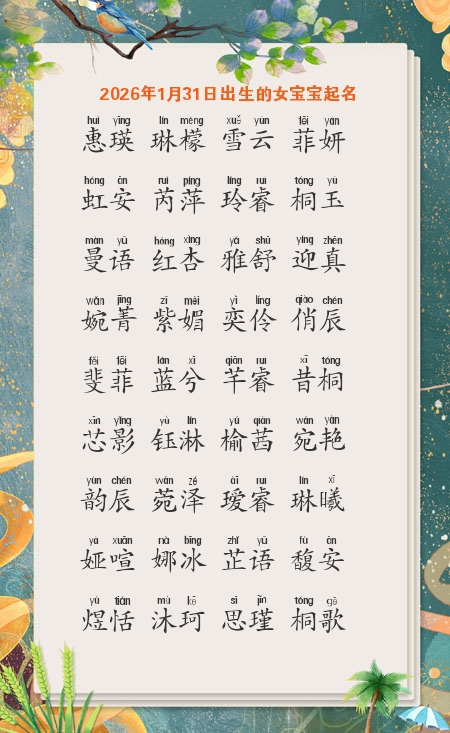 2026年1月31日出生的女宝宝起名
huì yīng lín méng xuě yún fēi yán
惠瑛 琳檬 雪云 菲妍
hóng ān ruì píng líng ruì tóng yù
虹安 芮萍 玲睿 桐玉
màn yǔ hóng xìng yǎ shū yíng zhēn
曼语 红杏 雅舒 迎真
wǎn jīng zǐ mèi yì líng qiào chén
婉菁 紫媚 奕伶 俏辰
fěi fēi lán xī qiān ruì xī tóng
斐菲 蓝兮 芊睿 昔桐
xīn yǐng yù lín yú qiàn wǎn yàn
芯影 钰淋 榆茜 宛艳
yùn chén wǎn zé ài ruì lín xī
韵辰 菀泽 瑷睿 琳曦
yà xuān nà bīng zhǐ yǔ fù ān
娅喧 娜冰 芷语 馥安
yù tián mù kē sī jǐn tóng gē
煜恬 沐珂 思瑾 桐歌